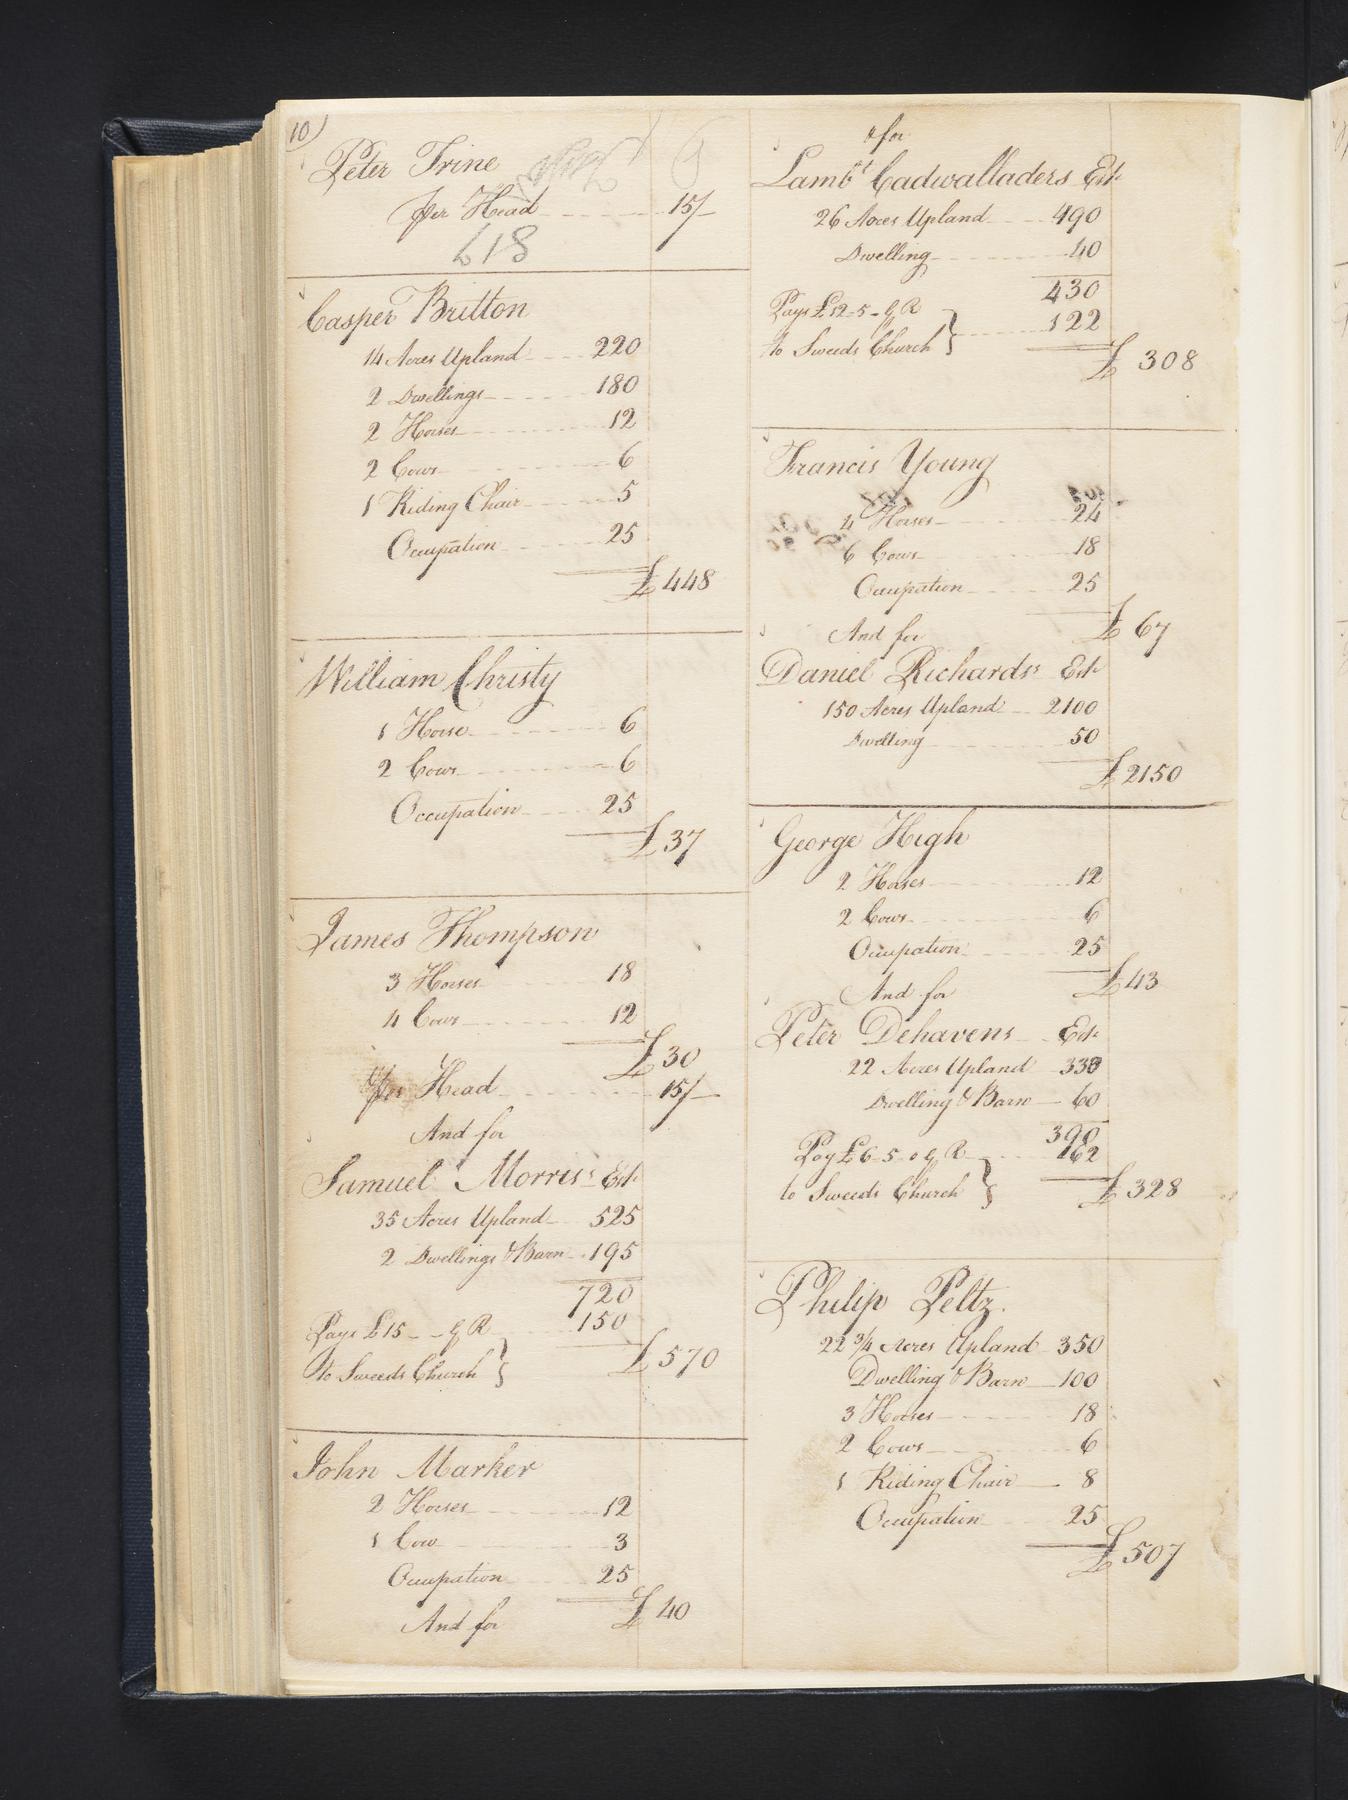 10)
Peter Trine
per Head 15/–
L18
Casper Britton
14 Acres Upland 220
2 Dwellings 180
2 Horses 12
2 Cows 6
1 Riding Chair 5
Occupation 25
£448
William Christy
1 Horse 6
2 Cows 6
Occupation 25
£37
James Thompson
3 Horses 18
4 Cows 12
£30
per Head 15/–
And for
Samuel Morris's Est
35 Acres Upland 525
2 Dwellings & Barn 195
720
Pays £15 – – G R 150
to Sweeds Church } £570
John Marker
2 Horses 12
1 Cow 3
Occupation 25
£40
And for
& for
Lambt Cadwalladers Est
26 Acres Upland 490
Dwelling 40
430
Pays £12–5– G R 122
to Sweeds Church }
£308
Francis Young
4 Horses 24
6 Cows 18
Occupation 25
£67
And for
Daniel Richards's Est
150 Acres Upland 2100
Dwelling 50
£2150
George High
2 Horses 12
2 Cows 6
Occupation 25
£43
And for
Peter Dehavens Est
22 Acres Upland 330
Dwelling & Barn 60
390
Pay £6–5–0 G R 162
to Sweeds Church } £328
Philip Peltz.
22 3/4 Acres Upland 350
Dwelling & Barn 100
3 Horses 18
2 Cows 6
1 Riding Chair 8
Occupation 25
£507